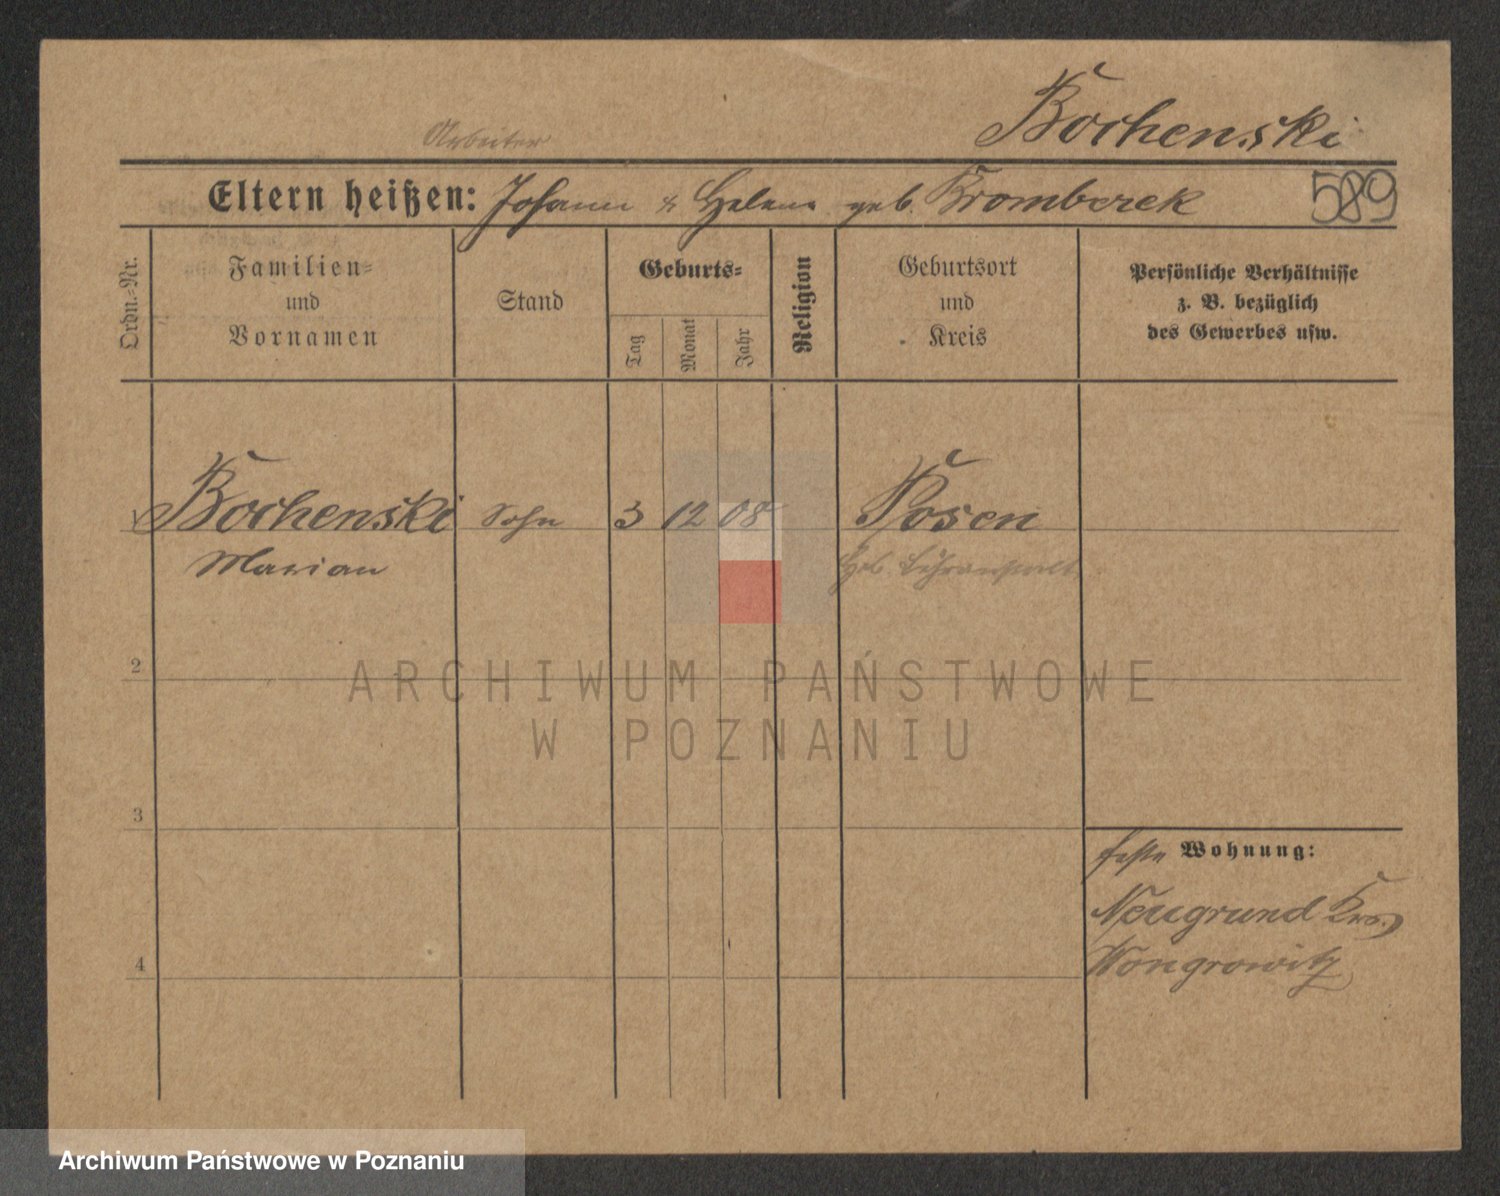 Bochenski
Arbeiter
Eltern heißen: Johann & Helene geb. Bromberek
589
Ordn.-Nr.
Familien-
und
Vornamen
Stand
Geburts-
Tag
Monat
Jahr
Religion
Geburtsort
und
Kreis
Persönliche Verhältnisse
z. B. bezüglich
des Gewerbes usw.
Bochenski Sohn 3 12 08 Posen
Marian
Heb. Lehranstalt
2
ARCHIWUM PAŃSTWOWE
W POZNANIU
3
feste Wohnung:
Neugrund Krs.
Wongrowitz
4
Archiwum Państwowe w Poznaniu